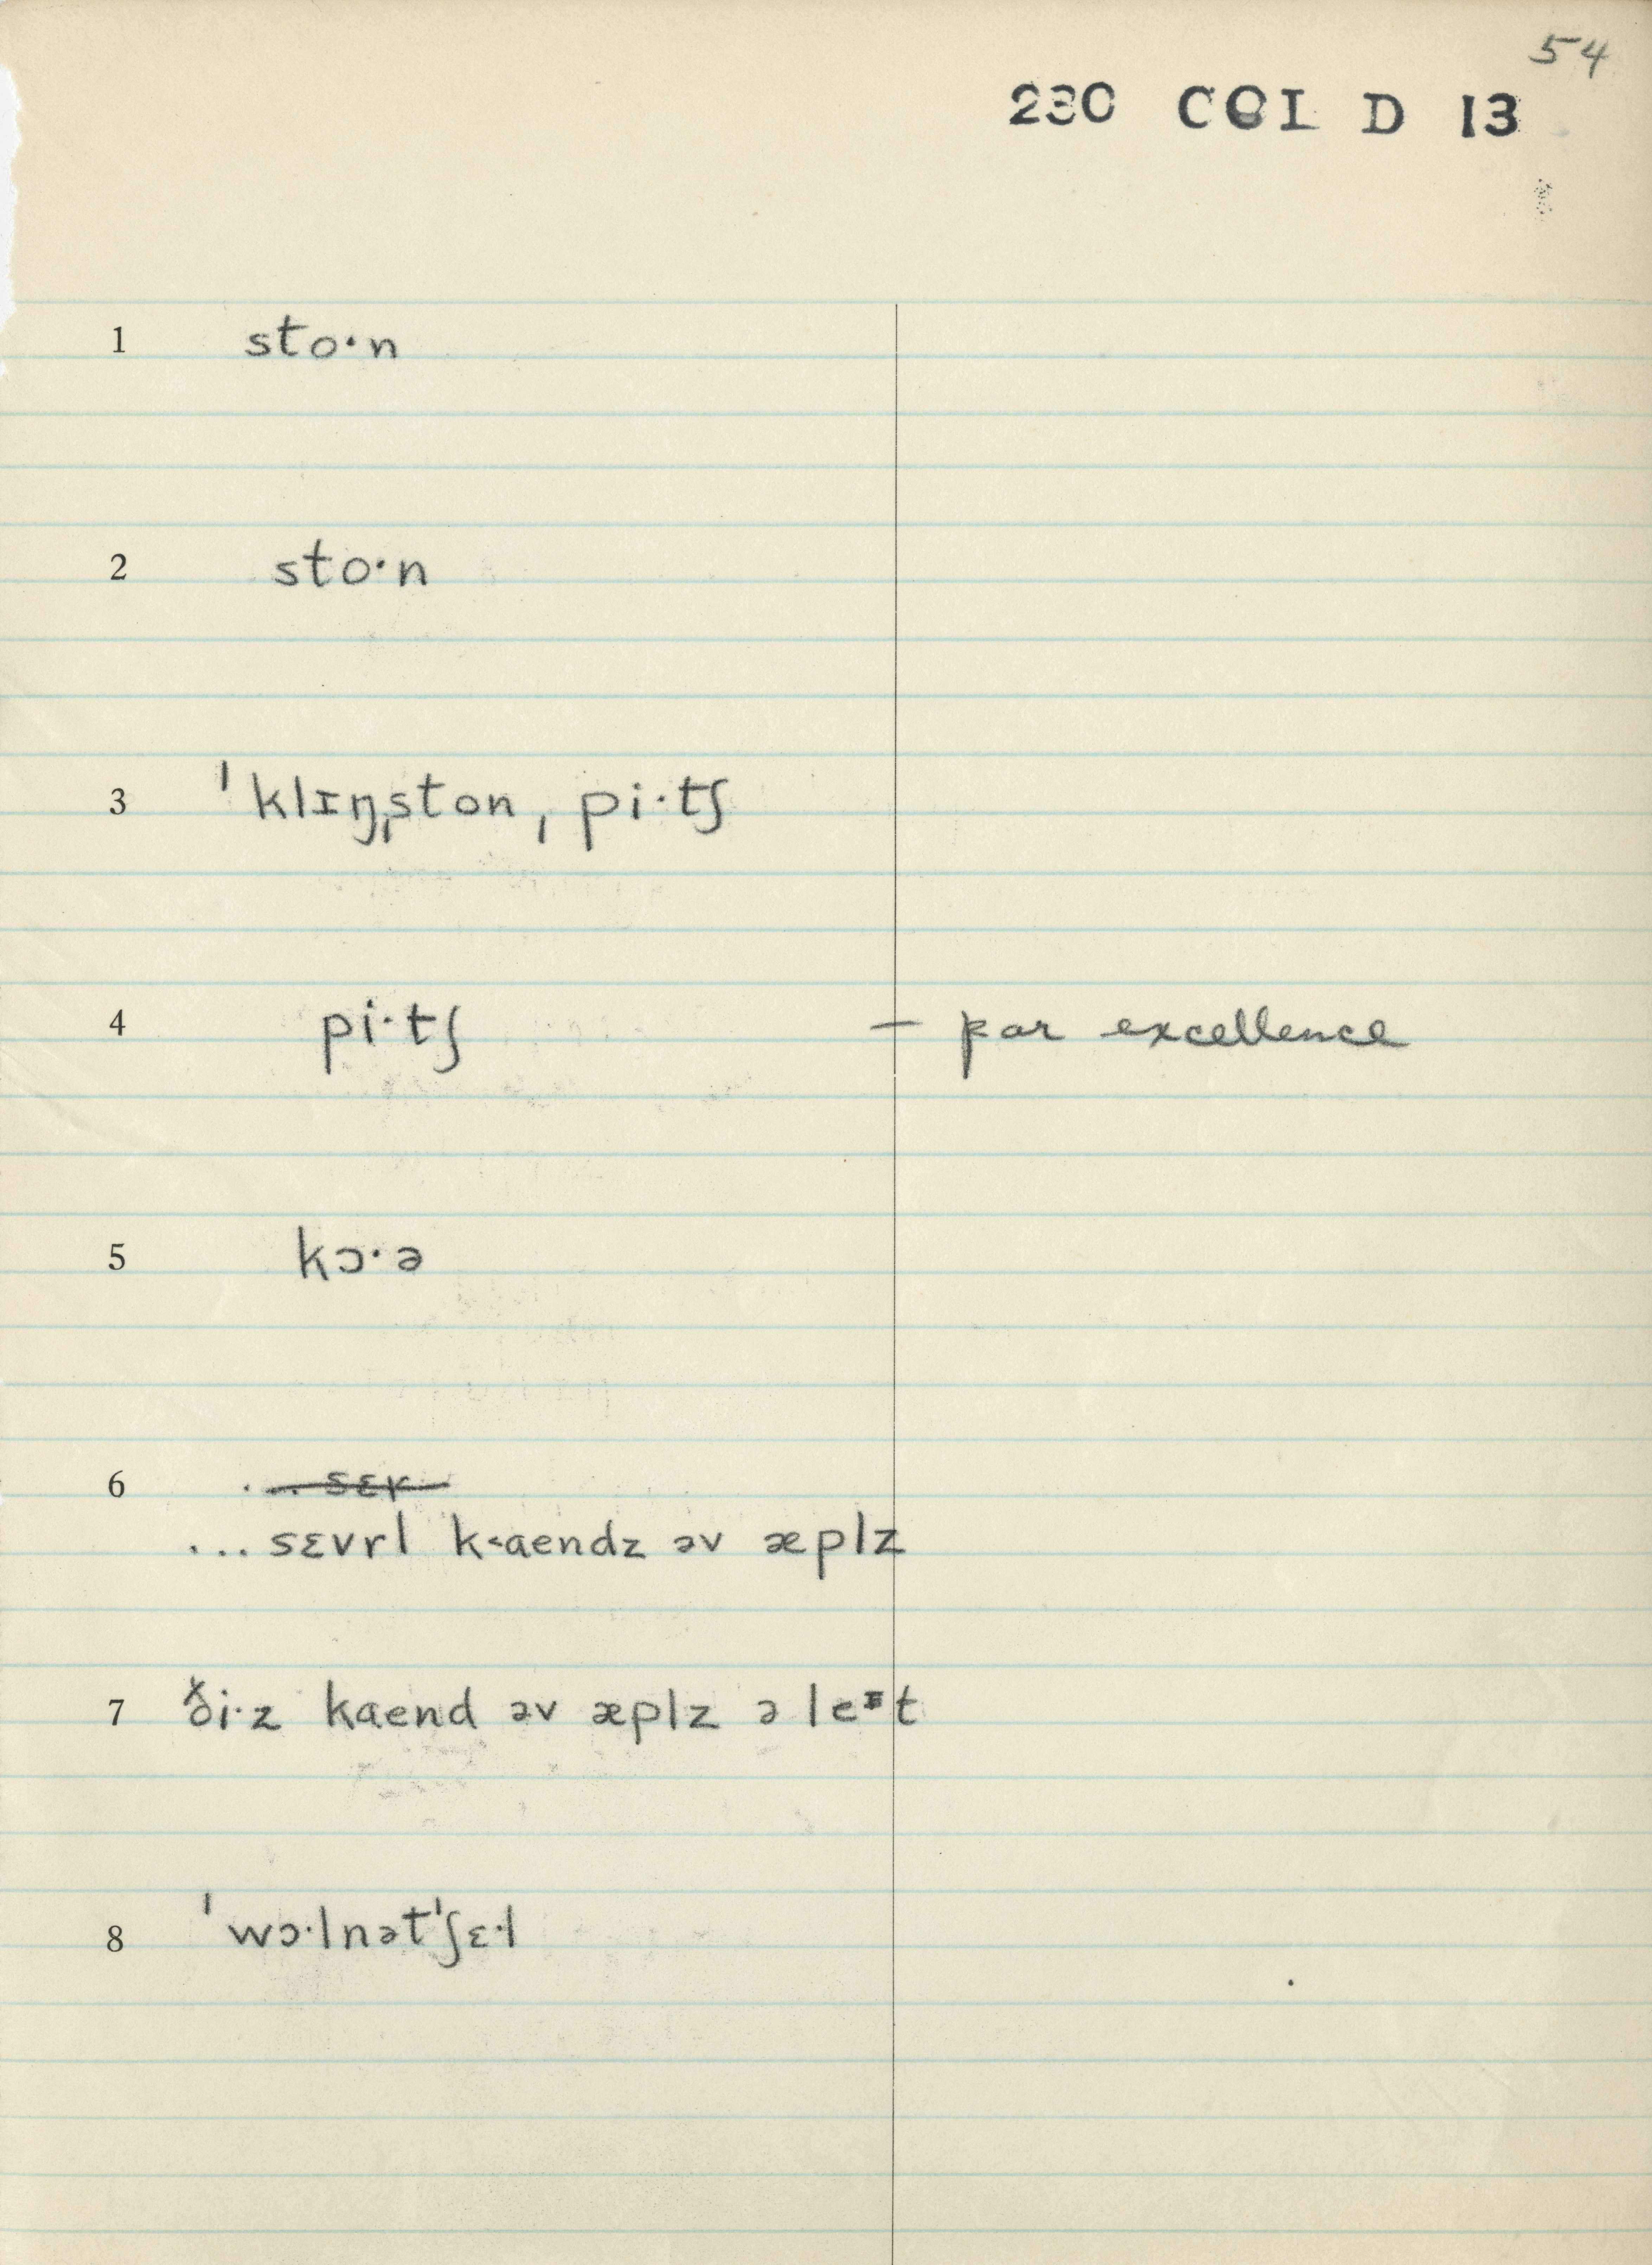 54
230 COI D 13
1 sto·n
2 sto·n
3 ˈklɪŋˌston ˌpi·tʃ
4 pi·tʃ — par excellence
5 kɔ·ə
6 . . . sɛr
... sɛvrl k<aendz əv æplz
7 ði·z kaend əv æplz ə leᶦt
8 ˈwɔ·lnətˈʃɛ·l